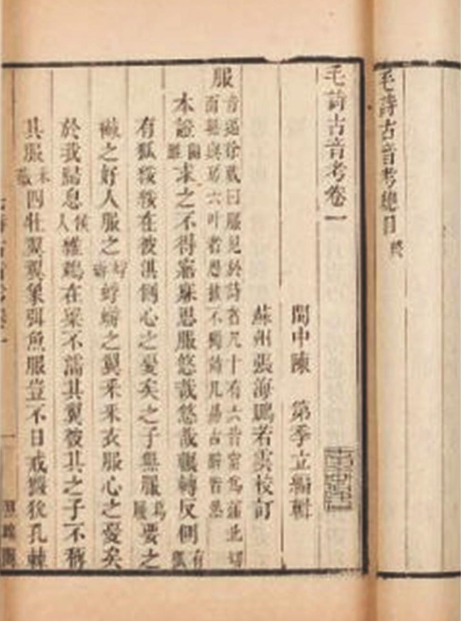 毛詩古音考總目 終
毛詩古音考卷一
閩中陳 第季立編輯
蘇州張海鵬若雲校訂
服 音逼徐蕆曰服見於詩者凡十有六皆當為蒲北切
而無與房六叶者愚按不獨詩凡易古辭皆然
本證 關雎 求之不得寤寐思服悠哉悠哉輾轉反側 有狐
有狐綏綏在彼淇側心之憂矣之子無服 葛屨 要之
襋之好人服之 蜉蝣 蜉蝣之翼采采衣服心之憂矣
於我歸息 候人 維鵜在梁不濡其翼彼其之子不稱
其服 采薇 四牡翼翼象弭魚服豈不日戒玁狁孔棘